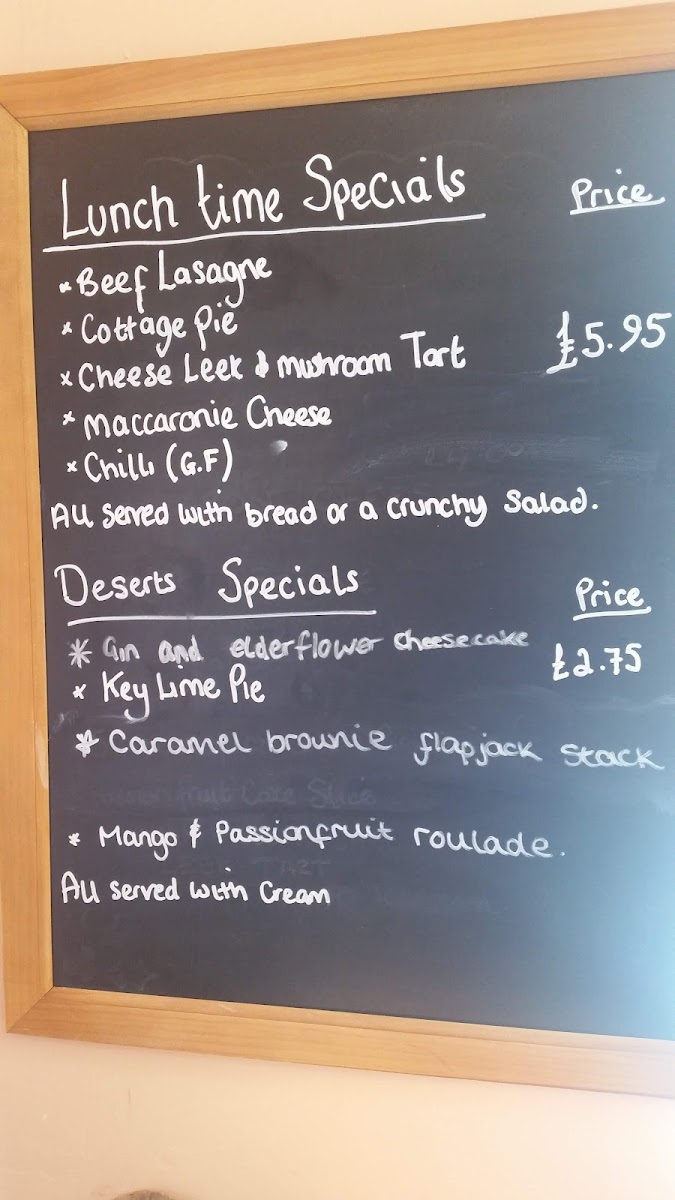 Lunch time Specials Price
* Beef Lasagne
* Cottage Pie
* Cheese Leek & mushroom Tart £5.95
* Maccaronie Cheese
* Chilli (G.F)
All served with bread or a crunchy salad.
Deserts Specials Price
* Gin and elderflower cheesecake £2.75
* Key Lime Pie
* Caramel brownie flapjack stack
* Mango & Passionfruit roulade.
All served with cream